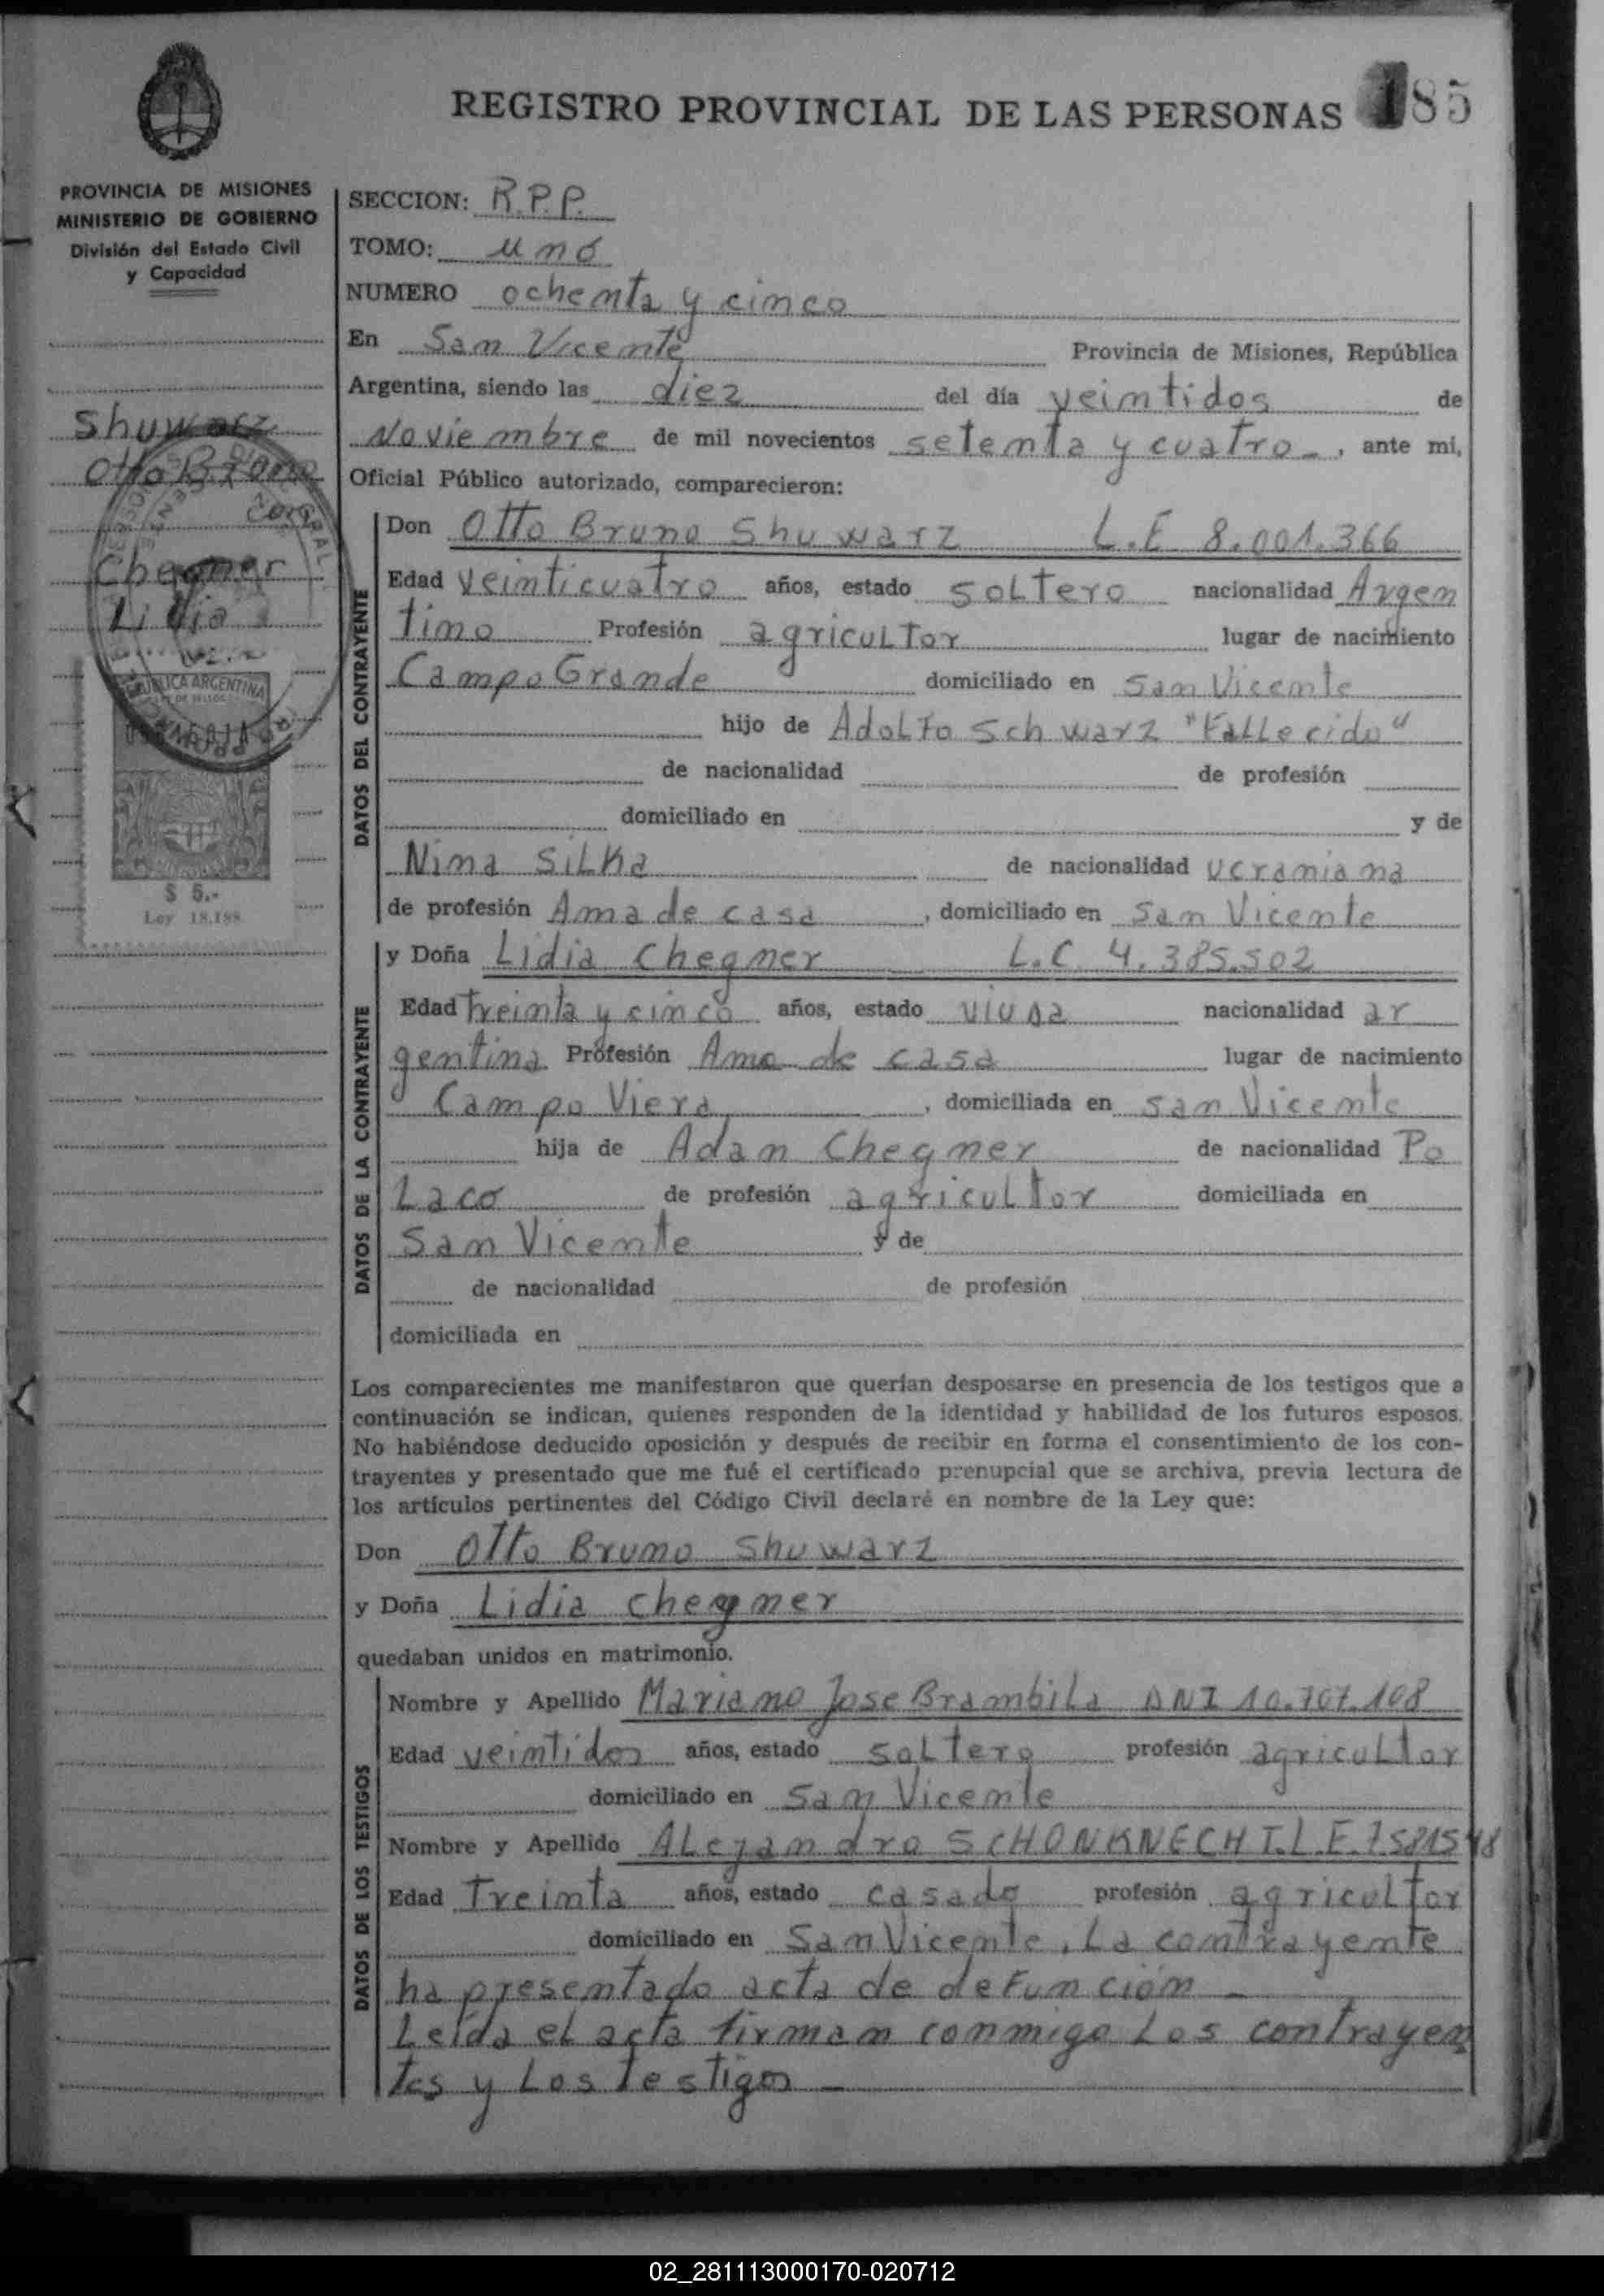 REGISTRO PROVINCIAL DE LAS PERSONAS 185
PROVINCIA DE MISIONES
MINISTERIO DE GOBIERNO
División del Estado Civil
y Capacidad
Shuwarz
Otto Bruno
con
Chegner
Lidia
REPUBLICA ARGENTINA
$ 5.-
Ley 18.188
SECCION: R.P.P.
TOMO: uno
NUMERO ochenta y cinco
En San Vicente Provincia de Misiones, República
Argentina, siendo las diez del día veintidos de
Noviembre de mil novecientos setenta y cuatro, ante mi,
Oficial Público autorizado, comparecieron:
DATOS DEL CONTRAYENTE
Don Otto Bruno Shuwarz L.E 8.001.366
Edad veinticuatro años, estado soltero nacionalidad Argen
tino Profesión agricultor lugar de nacimiento
Campo Grande domiciliado en San Vicente
hijo de Adolfo Schwarz "Fallecido"
de nacionalidad de profesión
domiciliado en y de
Nina Silka de nacionalidad ucraniana
de profesión Ama de casa, domiciliado en San Vicente
DATOS DE LA CONTRAYENTE
y Doña Lidia Chegner L.C 4.385.502
Edad treinta y cinco años, estado viuda nacionalidad ar
gentina Profesión Ama de casa lugar de nacimiento
Campo Viera, domiciliada en San Vicente
hija de Adan Chegner de nacionalidad Po
laco de profesión agricultor domiciliada en
San Vicente y de
de nacionalidad de profesión
domiciliada en
Los comparecientes me manifestaron que querían desposarse en presencia de los testigos que a
continuación se indican, quienes responden de la identidad y habilidad de los futuros esposos.
No habiéndose deducido oposición y después de recibir en forma el consentimiento de los con-
trayentes y presentado que me fué el certificado prenupcial que se archiva, previa lectura de
los artículos pertinentes del Código Civil declaré en nombre de la Ley que:
Don Otto Bruno Shuwarz
y Doña Lidia Chegner
quedaban unidos en matrimonio.
DATOS DE LOS TESTIGOS
Nombre y Apellido Mariano Jose Brambila DNI 10.707.108
Edad veintidos años, estado soltero profesión agricultor
domiciliado en San Vicente
Nombre y Apellido Alejandro SCHONKNECHT.L.E.7581548
Edad Treinta años, estado casado profesión agricultor
domiciliado en San Vicente. La contrayente
ha presentado acta de defunción -
Leída el acta firman conmigo los contrayen
tes y los testigos -
02_281113000170-020712